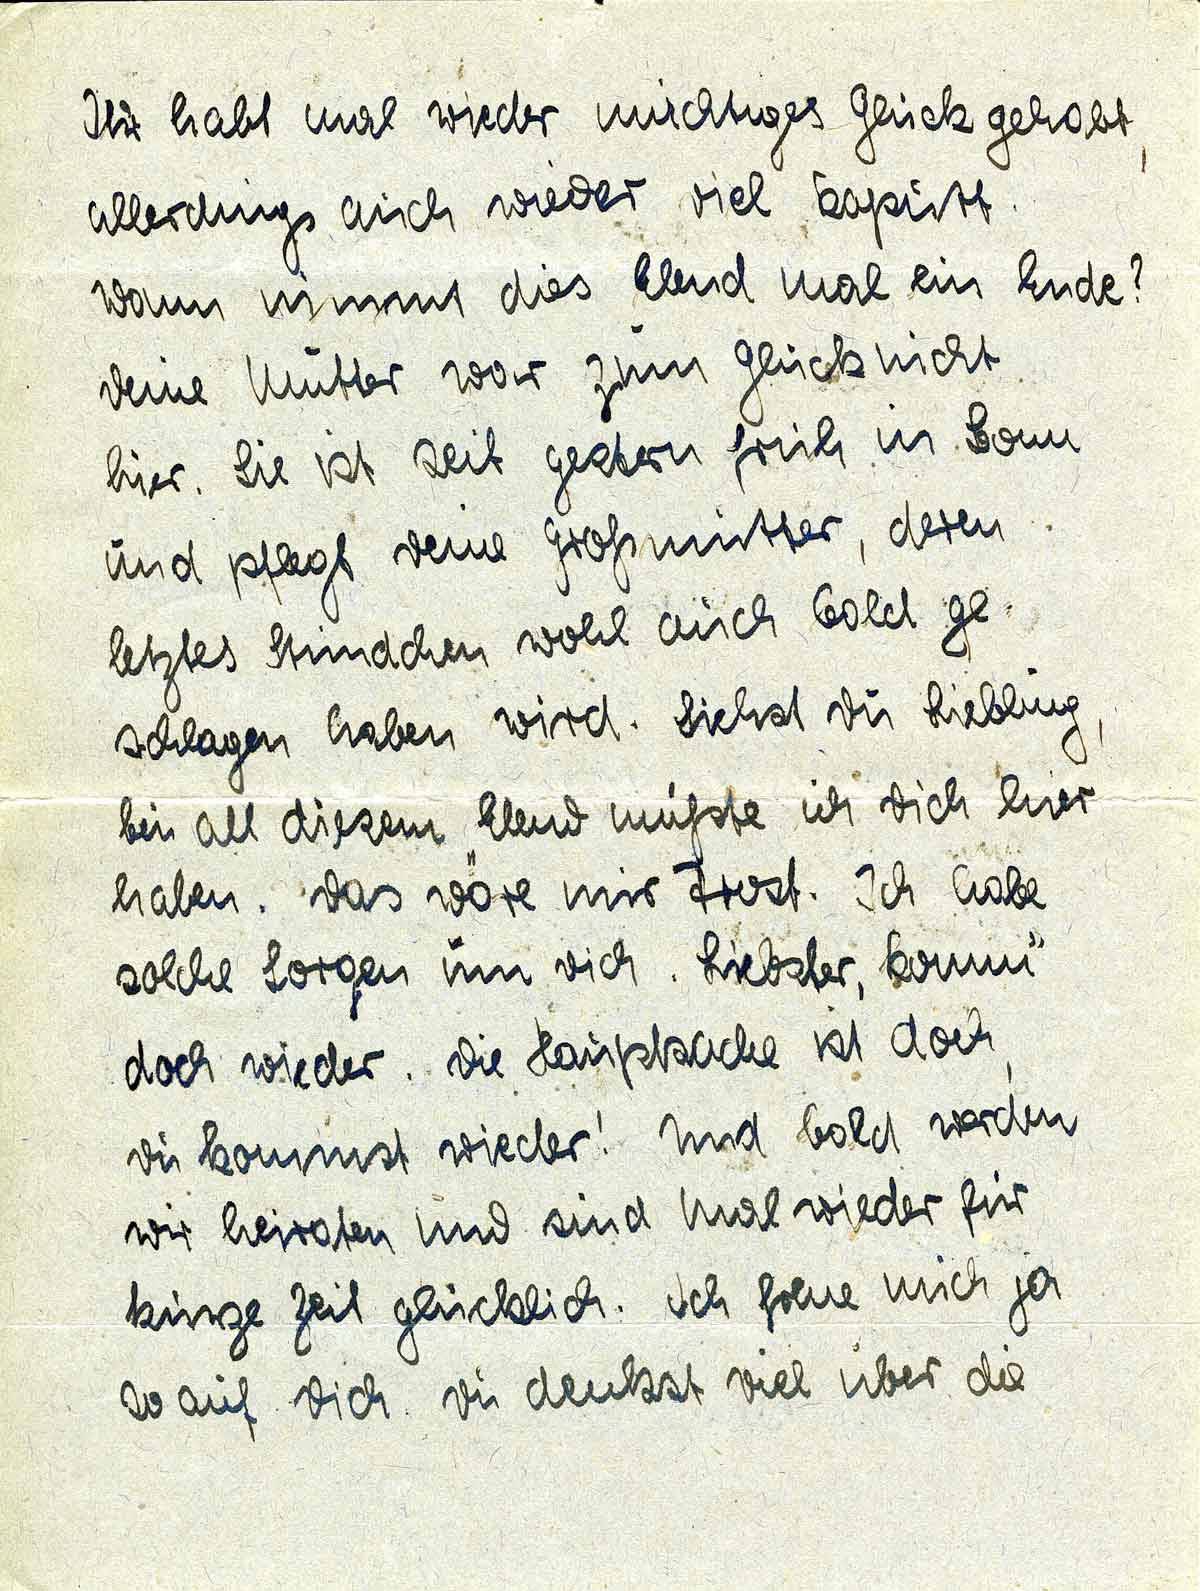 Ihr habt mal wieder mächtiges Glück gehabt,
allerdings auch wieder viel kaputt.
Wann nimmt dies Elend mal ein Ende?
Deine Mutter war zum Glück nicht
hier. Sie ist seit gestern früh in Bonn
und pflegt deine Großmutter, deren
letztes Stündchen wohl auch bald ge-
schlagen haben wird. Siehst du Liebling,
bei all diesem Elend müßte ich dich hier
haben. Das wäre mir Trost. Ich habe
solche Sorgen um dich. Liebster, komm"
doch wieder. Die Hauptsache ist doch,
du kommst wieder! Und bald werden
wir heiraten und sind mal wieder für
kurze Zeit glücklich. Ich freue mich ja
so auf dich. Du denkst viel über die